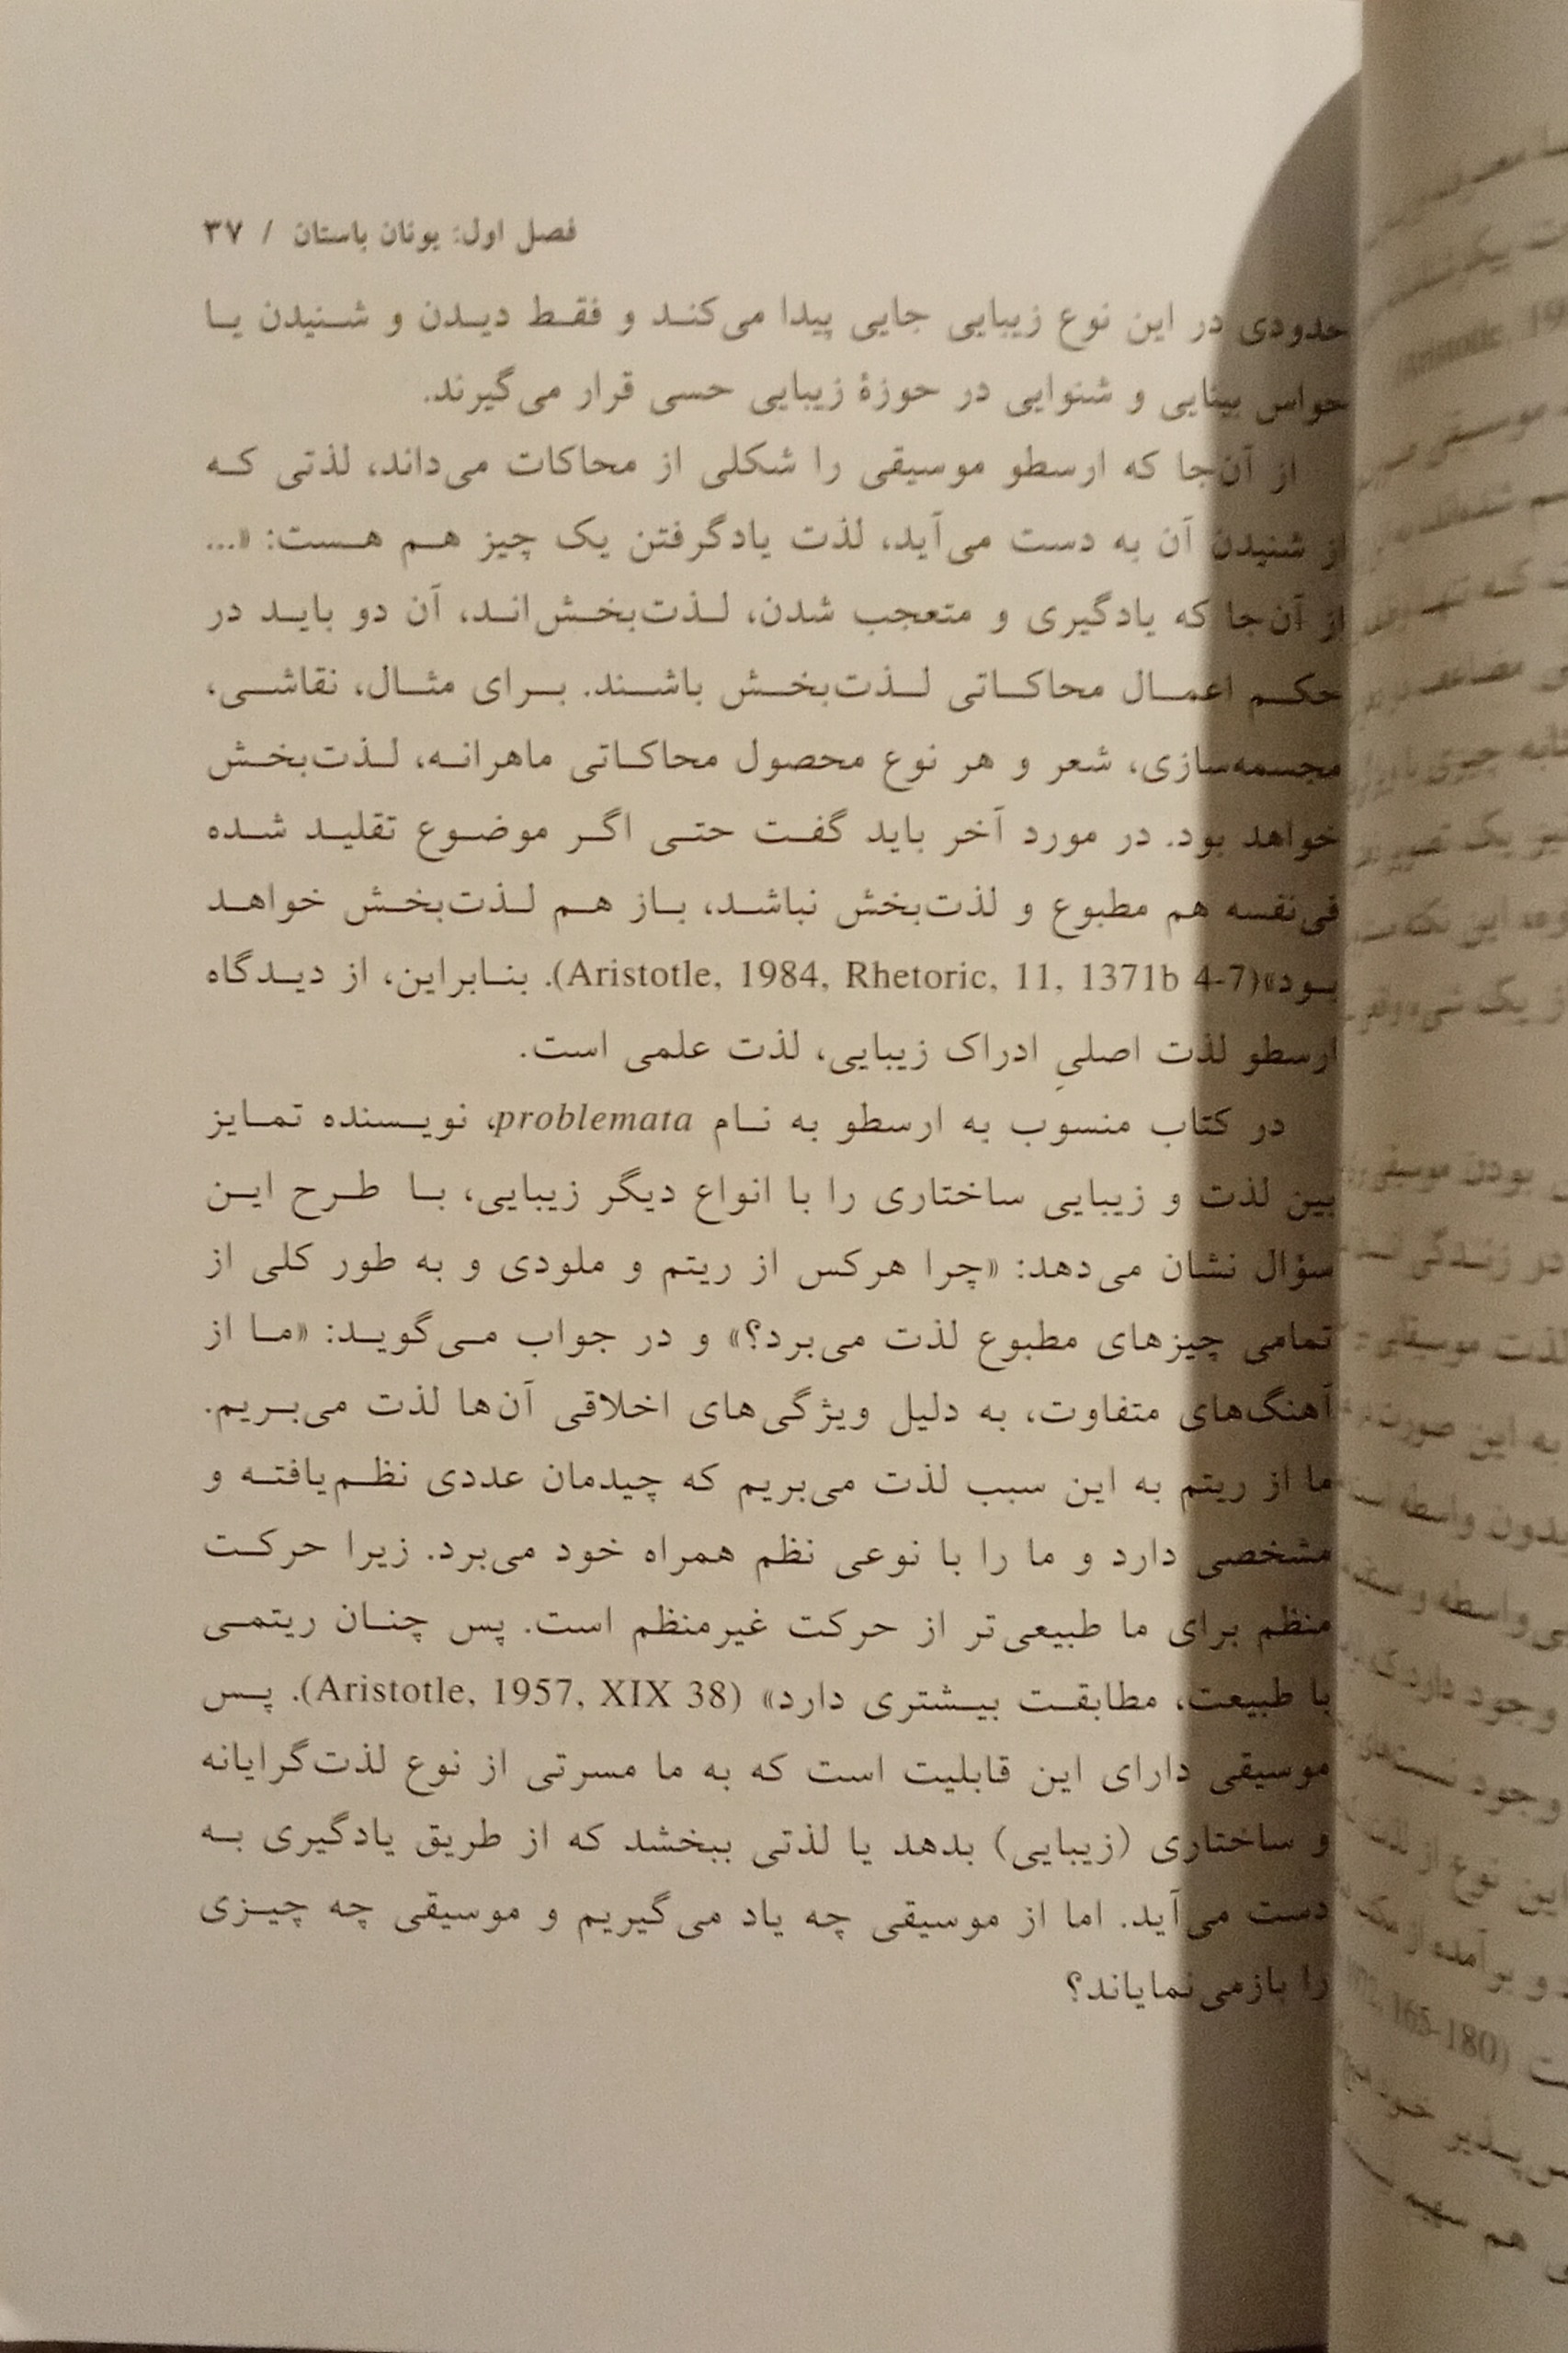 فصل اول: یونان باستان / ۳۷
حدودی در این نوع زیبایی جایی پیدا می‌کند و فقط دیدن و شنیدن یا
حواس بینایی و شنوایی در حوزهٔ زیبایی حسی قرار می‌گیرند.
از آن‌جا که ارسطو موسیقی را شکلی از محاکات می‌داند، لذتی که
از شنیدن آن به دست می‌آید، لذت یادگرفتن یک چیز هم هست: «...
از آن‌جا که یادگیری و متعجب شدن، لذت‌بخش‌اند، آن دو باید در
حکم اعمال محاکاتی لذت‌بخش باشند. برای مثال، نقاشی،
مجسمه‌سازی، شعر و هر نوع محصول محاکاتی ماهرانه، لذت‌بخش
خواهد بود. در مورد آخر باید گفت حتی اگر موضوع تقلید شده
فی‌نفسه هم مطبوع و لذت‌بخش نباشد، باز هم لذت‌بخش خواهد
بود»(Aristotle, 1984, Rhetoric, 11, 1371b 4-7). بنابراین، از دیدگاه
ارسطو لذت اصلیِ ادراک زیبایی، لذت علمی است.
در کتاب منسوب به ارسطو به نام problemata، نویسنده تمایز
بین لذت و زیبایی ساختاری را با انواع دیگر زیبایی، با طرح این
سؤال نشان می‌دهد: «چرا هرکس از ریتم و ملودی و به طور کلی از
تمامی چیزهای مطبوع لذت می‌برد؟» و در جواب می‌گوید: «ما از
آهنگ‌های متفاوت، به دلیل ویژگی‌های اخلاقی آن‌ها لذت می‌بریم.
ما از ریتم به این سبب لذت می‌بریم که چیدمان عددی نظم‌یافته و
مشخصی دارد و ما را با نوعی نظم همراه خود می‌برد. زیرا حرکت
منظم برای ما طبیعی‌تر از حرکت غیرمنظم است. پس چنان ریتمی
با طبیعت، مطابقت بیشتری دارد» (Aristotle, 1957, XIX 38). پس
موسیقی دارای این قابلیت است که به ما مسرتی از نوع لذت‌گرایانه
و ساختاری (زیبایی) بدهد یا لذتی ببخشد که از طریق یادگیری به
دست می‌آید. اما از موسیقی چه یاد می‌گیریم و موسیقی چه چیزی
را بازمی‌نمایاند؟